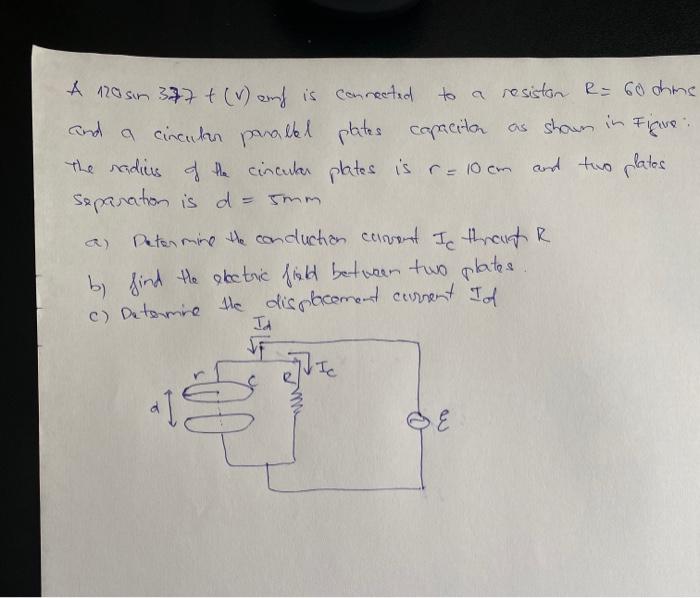 A 120 sin 377 t (V) emf is connected to a resistor R = 60 ohms
and a circular parallel plates capacitor as shown in Figure.
The radius of the circular plates is r = 10 cm and two plates
separation is d = 5mm
a) Determine the conduction current Ic through R
b) find the electric field between two plates.
c) Determine the displacement current Id
Id
r C R Ic
d ε